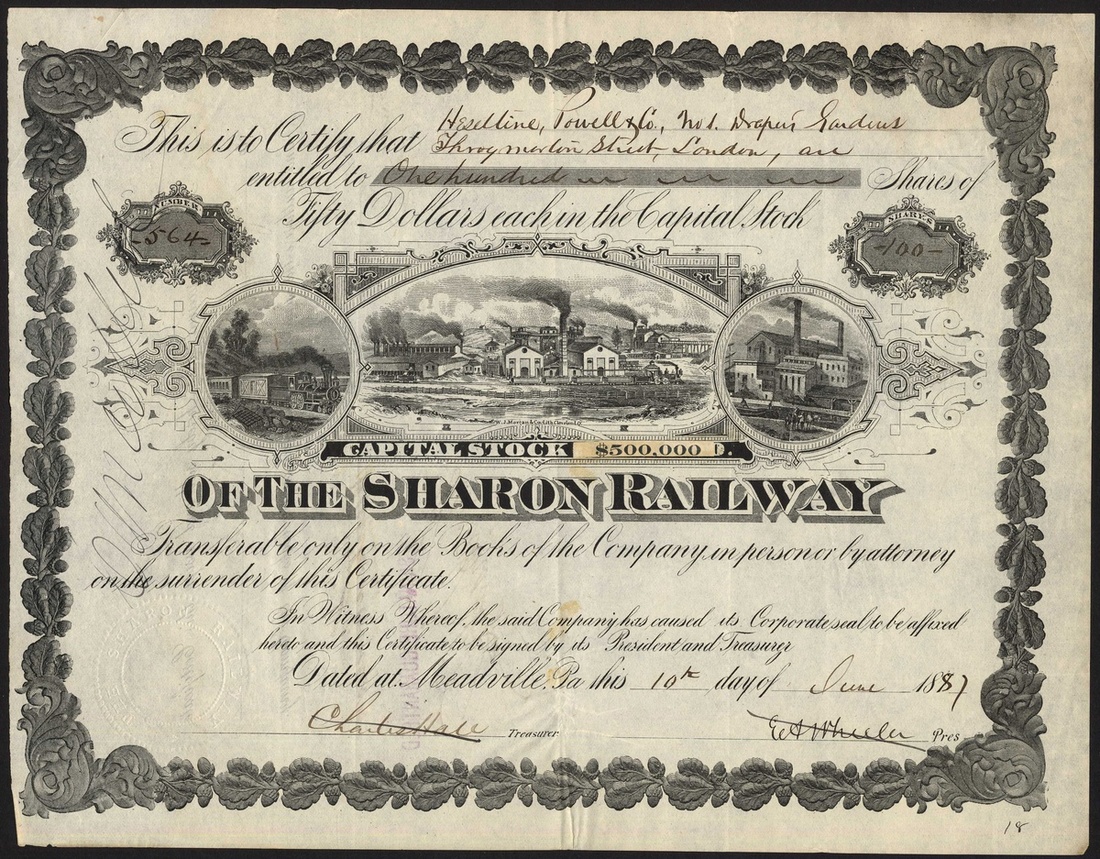 This is to Certify that Heseltine, Powell & Co., No 1. Drapers Gardens
Throgmorton Street, London, are
entitled to One hundred Shares of
Fifty Dollars each in the Capital Stock
NUMBER
-564-
SHARES
-100-
W. J. Morgan & Co. Lith. Cleveland, O.
CAPITAL STOCK $500,000 D.
OF THE SHARON RAILWAY
Transferable only on the Books of the Company, in person or by attorney
on the surrender of this Certificate.
In Witness Whereof, the said Company has caused its Corporate seal to be affixed
hereto and this Certificate to be signed by its President and Treasurer
Dated at Meadville, Pa this 10th day of June 1887
Charles Hall Treasurer E A Wheeler Pres
18